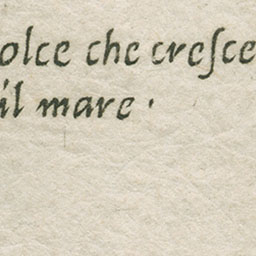 olce che creſce
il mare ·